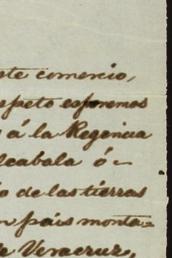 este comercio,
speto esponemos
á la Regencia
lcabala ó
o de las tierras
n pais monta=
de Veracruz,